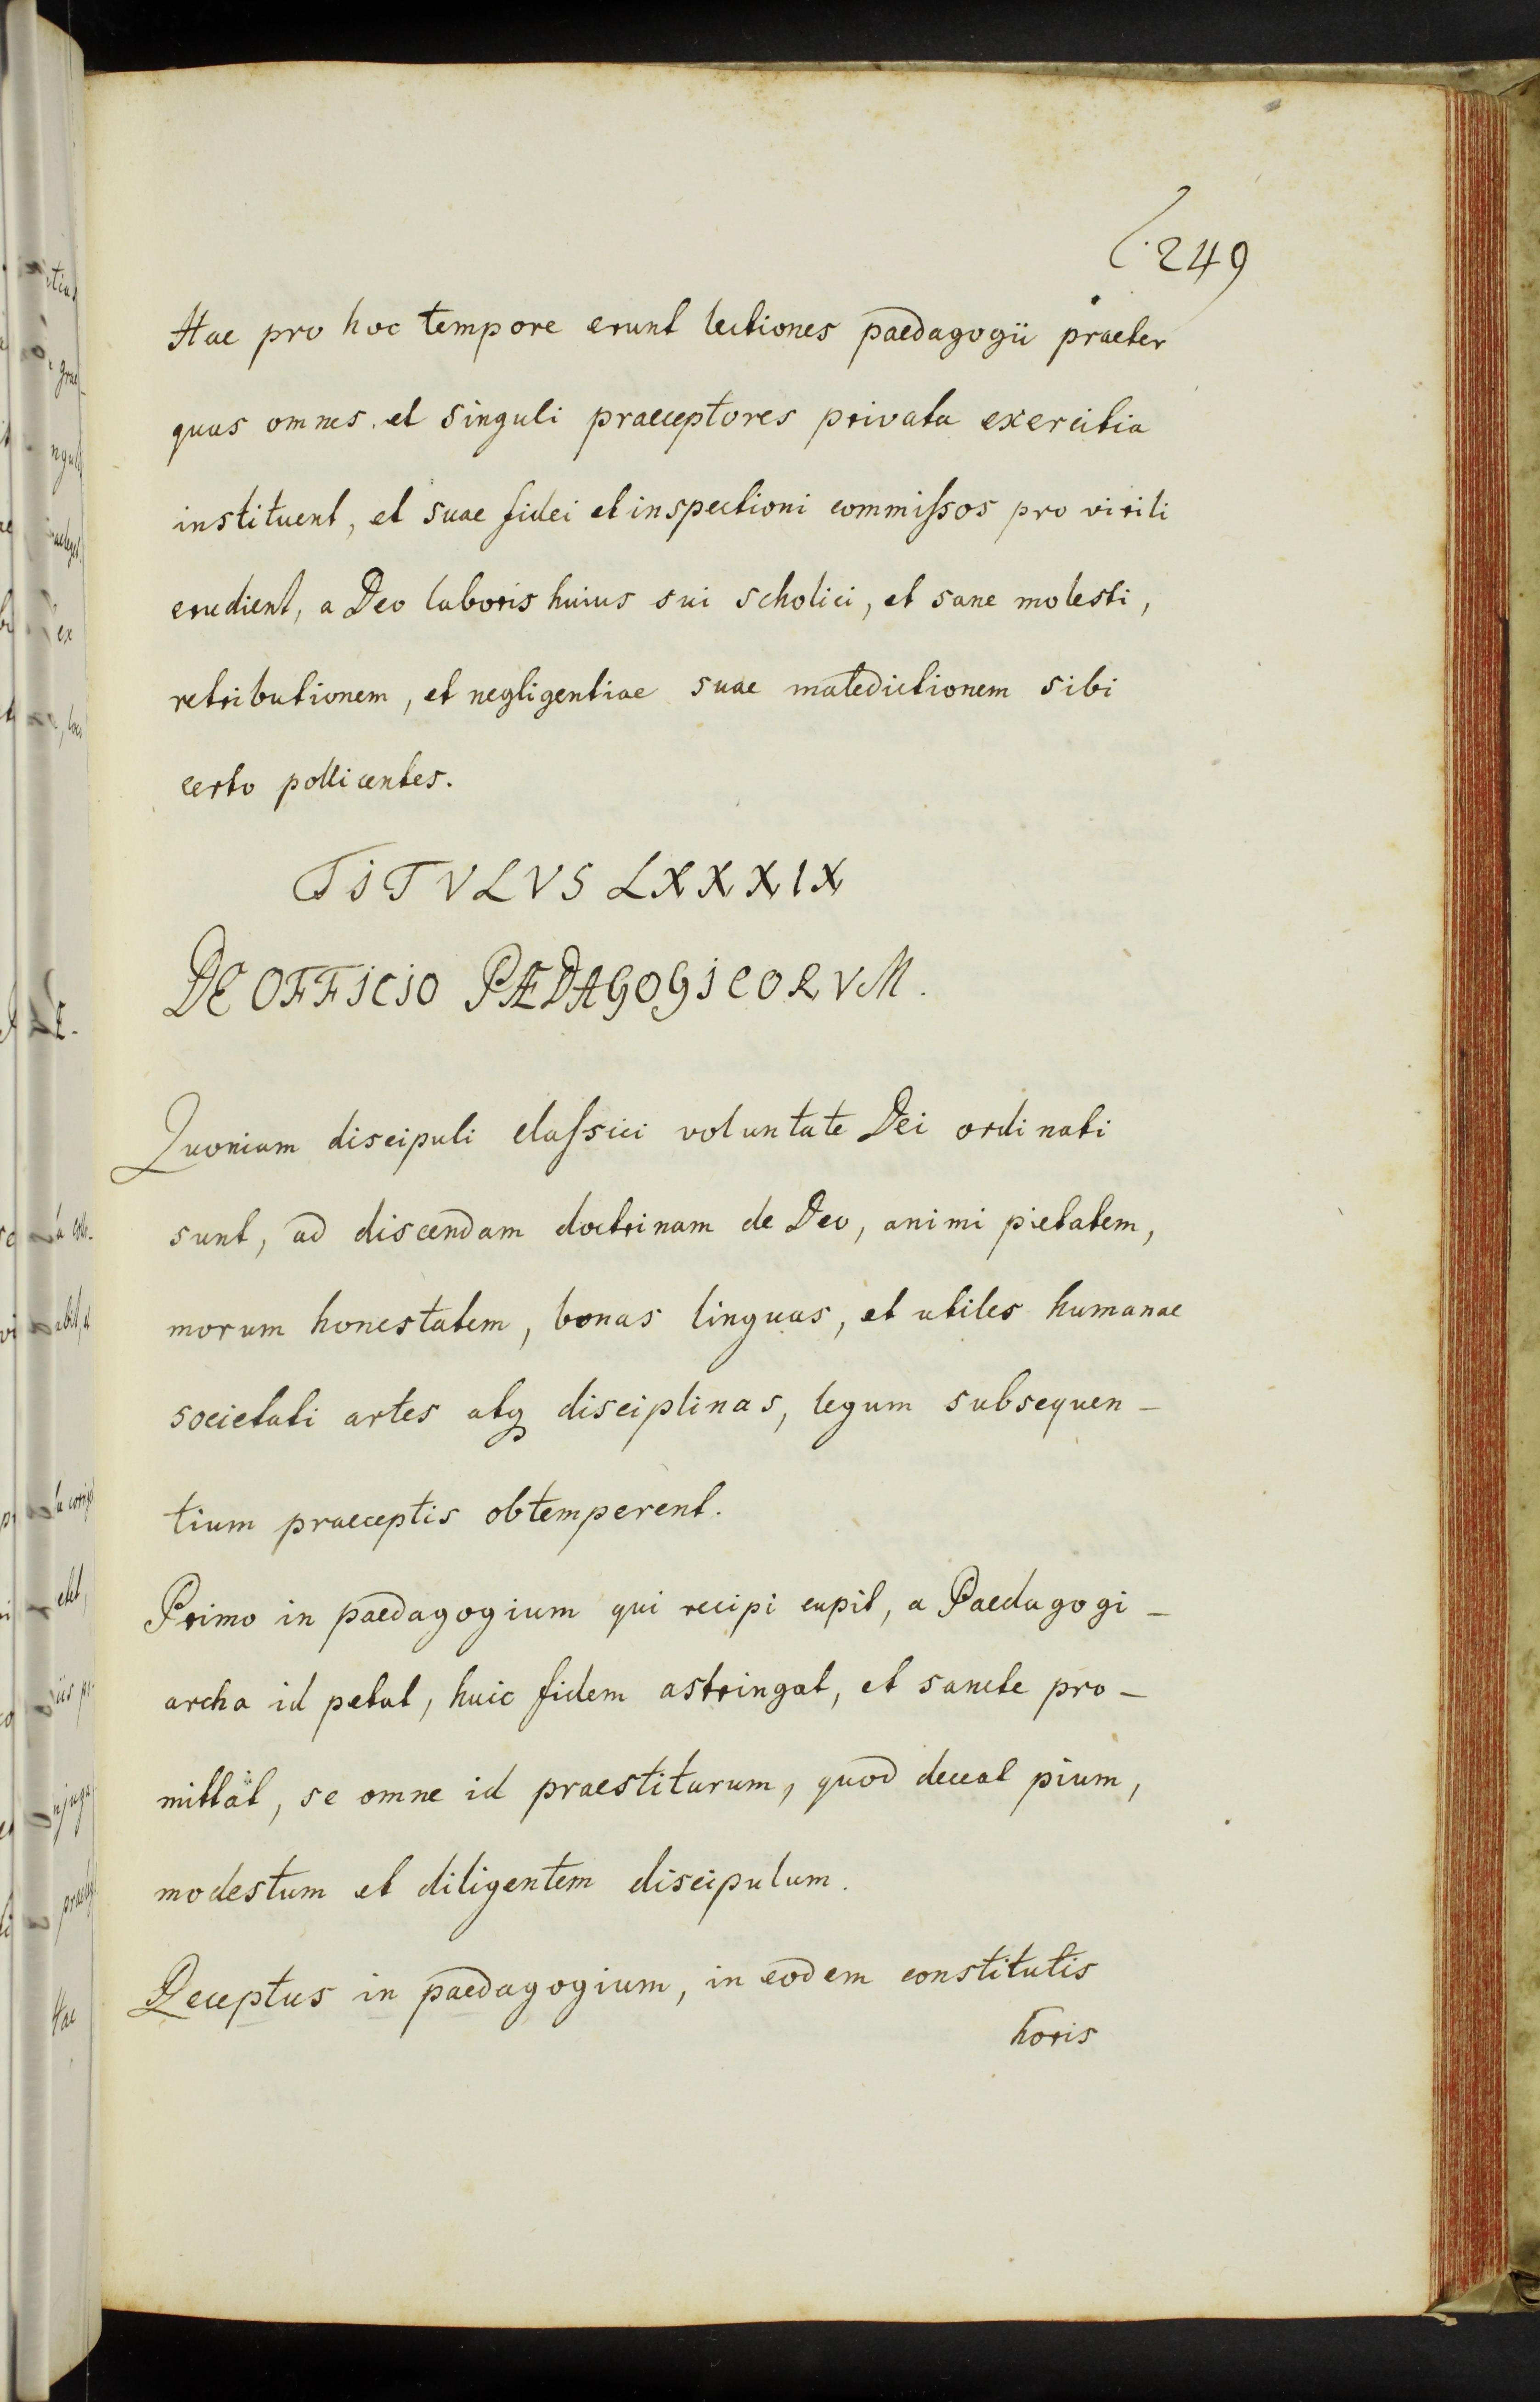 249
Hae pro hoc tempore erunt lectiones paedagogii praeter
quas omnes et singuli praeceptores privata exercitia
instituent, et suae fidei et inspectioni commiſsos pro virili
erudient, a Deo laboris huius sui scholici, et sane molesti,
retributionem, et negligentiae suae maledictionem sibi
certo pollicentes.
TITVLVS LXXXIX
DE OFFICIO PÆDAGOGICORVM.
Quoniam discipuli claſsici voluntate Dei ordinati
sunt, ad discendam doctrinam de Deo, animi pietatem,
morum honestatem, bonas linguas, et utiles humanae
societati artes atq disciplinas, legum subsequen-
tium praeceptis obtemperent.
Primo in paedagogium qui recipi cupit, a Paedagogi-
archa id petat, huic fidem astringat, et sancte pro-
mittat, se omne id praestiturum, quod deceat pium,
modestum et diligentem discipulum.
Receptus in paedagogium, in eodem constitutis
horis